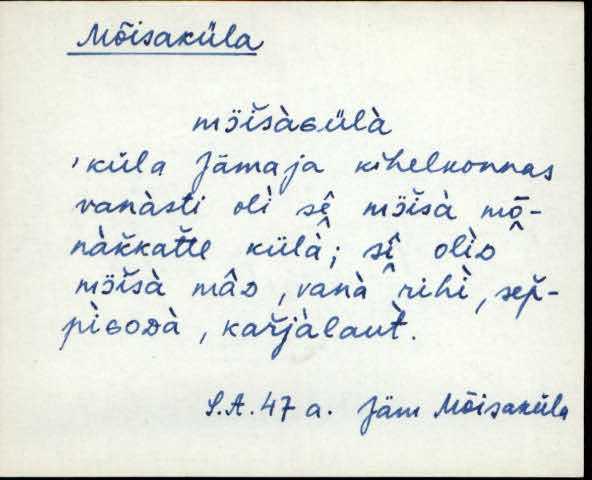 Mõisaküla
möi̬šàɢülà
'küla Jämaja kihelkonnas
vanàsti oli sê möišà mō-
nàkkatte külà; sî oliᴅ
möišà mâᴅ, vanà rihì, sep̆-
pìɢoᴅà, kařjàlaut̀.
S.A. 47 a. Jäm Mõisaküla